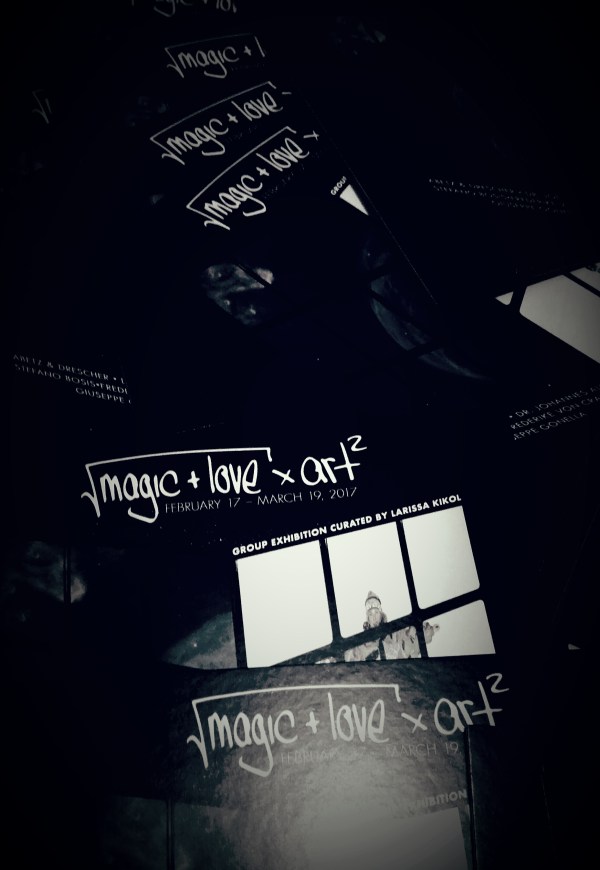 √magic + l
√magic + love
√magic + love ×
GROUP
ABETZ & DRESCHER •
STEFANO BOSIS • FREDE
GIUSEPPE
• DR. JOHANNES
EDERIKE VON CRA
EPPE GONELLA
√magic + love × art²
FEBRUARY 17 – MARCH 19, 2017
GROUP EXHIBITION CURATED BY LARISSA KIKOL
√magic + love × art²
FEBRUA MARCH 19
HIBITION